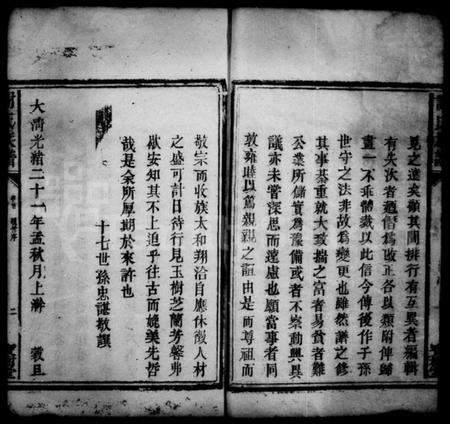 見之遠矣顧其間排行有互異者編輯
有失次者遍曆為改正各以類附俾歸
畫一不乖體裁以此信今傳後作子孫
世守之法非故為變更也雖然譜之修
其事綦重就大致揣之富者易貧者難
公業所儲實為豫備或者不察動興異
議亦未嘗深思而遠慮也願當事者同
敦雍睦以篤親親之誼由是而尊祖而
敬宗而收族太和翔洽自應休徵人材
之盛可計日待行見玉樹芝蘭芳馨弗
歇安知其不上追乎往古而媲美先哲
哉是余所厚期於來許也
十七世孫忠謀敬譔
大淸光緖二十一年孟秋月上澣 穀旦
二